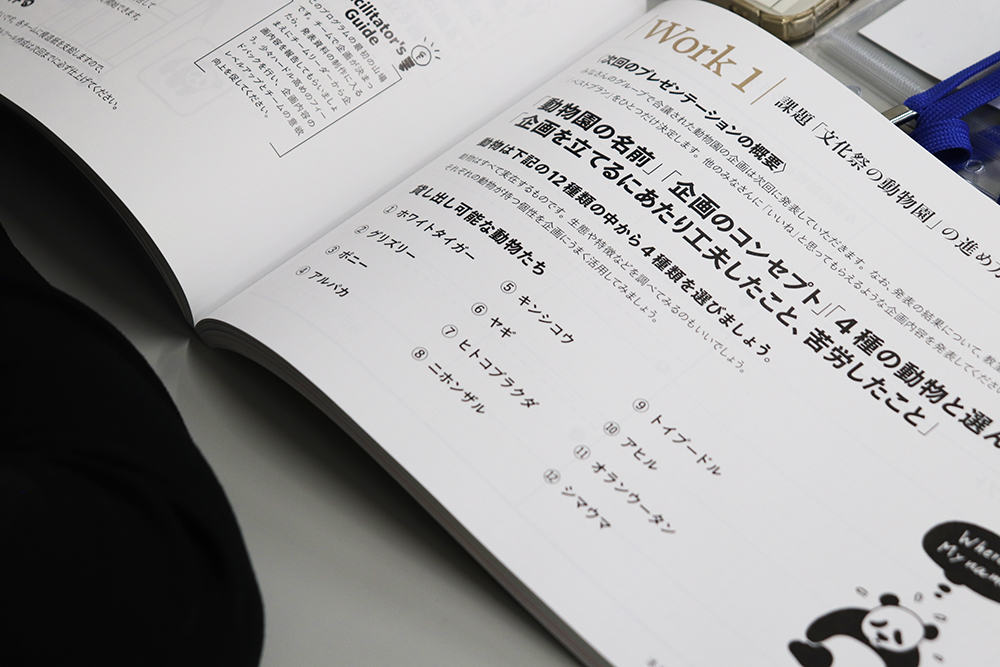 Facilitator's
Guide
このプログラムの最初の山場
です。チームで企画が決まっ
たら、発表資料の制作に入る
まえにチームリーダーから企
画内容を報告してもらいましょ
う。少々ハードル高めのフィー
ドバックを行い、企画内容の
レベルアップとチームの意欲
向上を促してください。
Work 1
課題「文化祭の動物園」の進め方
〈次回のプレゼンテーションの概要〉
みなさんのグループで合議された動物園の企画は次回に発表していただきます。なお、発表の結果について、教室
ベストプラン」をひとつだけ決定します。他のみなさんに「いいね」と思ってもらえるような企画内容を発表してください
「動物園の名前」「企画のコンセプト」「4種の動物と選ん
「企画を立てるにあたり工夫したこと、苦労したこと」
動物は下記の12種類の中から4種類を選びましょう。
動物はすべて実在するものです。生態や特徴などを調べてみるのもいいでしょう。
それぞれの動物が持つ個性を企画にうまく活用してみましょう。
貸し出し可能な動物たち
① ホワイトタイガー
② グリズリー
③ ポニー
④ アルパカ
⑤ キンシコウ
⑥ ヤギ
⑦ ヒトコブラクダ
⑧ ニホンザル
⑨ トイプードル
⑩ アヒル
⑪ オランウータン
⑫ シマウマ
Where
My name